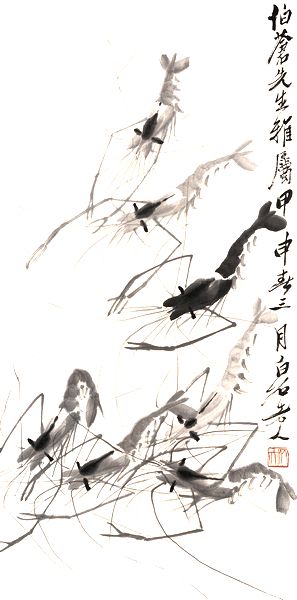 伯蒼先生雅屬甲申春三月白石老人